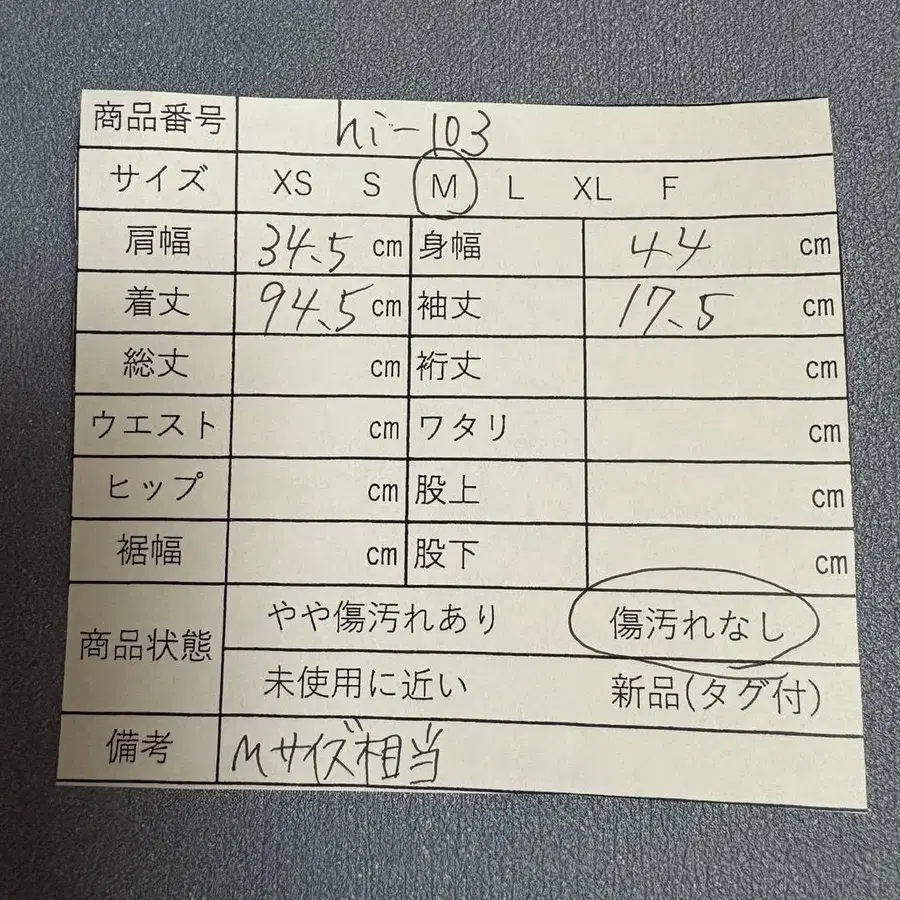 商品番号 hi-103
サイズ XS S M L XL F
肩幅 34.5 cm 身幅 44 cm
着丈 94.5 cm 袖丈 17.5 cm
総丈 cm 裄丈 cm
ウエスト cm ワタリ cm
ヒップ cm 股上 cm
裾幅 cm 股下 cm
商品状態 やや傷汚れあり 傷汚れなし
未使用に近い 新品(タグ付)
備考 Mサイズ相当